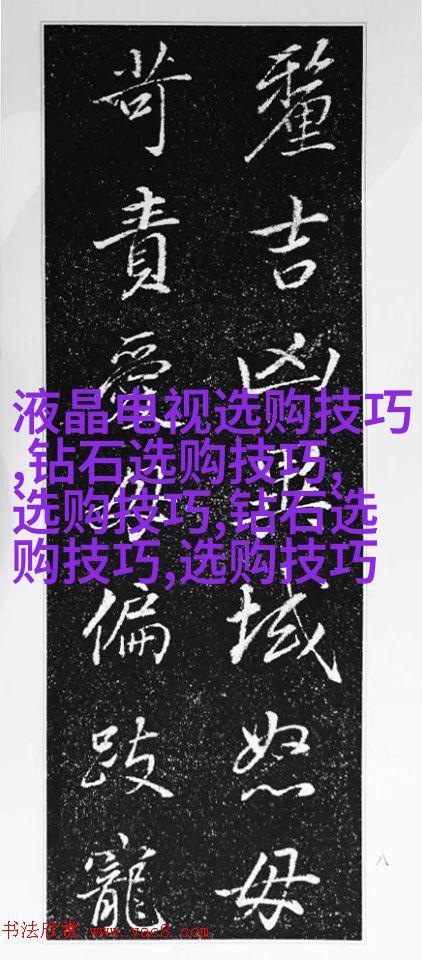 液晶电视选购技巧
,钻石选购技巧,
选购技巧,钻石选
购技巧,选购技巧
釐吉凶異域怒毋
苛責愛毋偏跂寵
八
书法欣赏 www.yac8.com